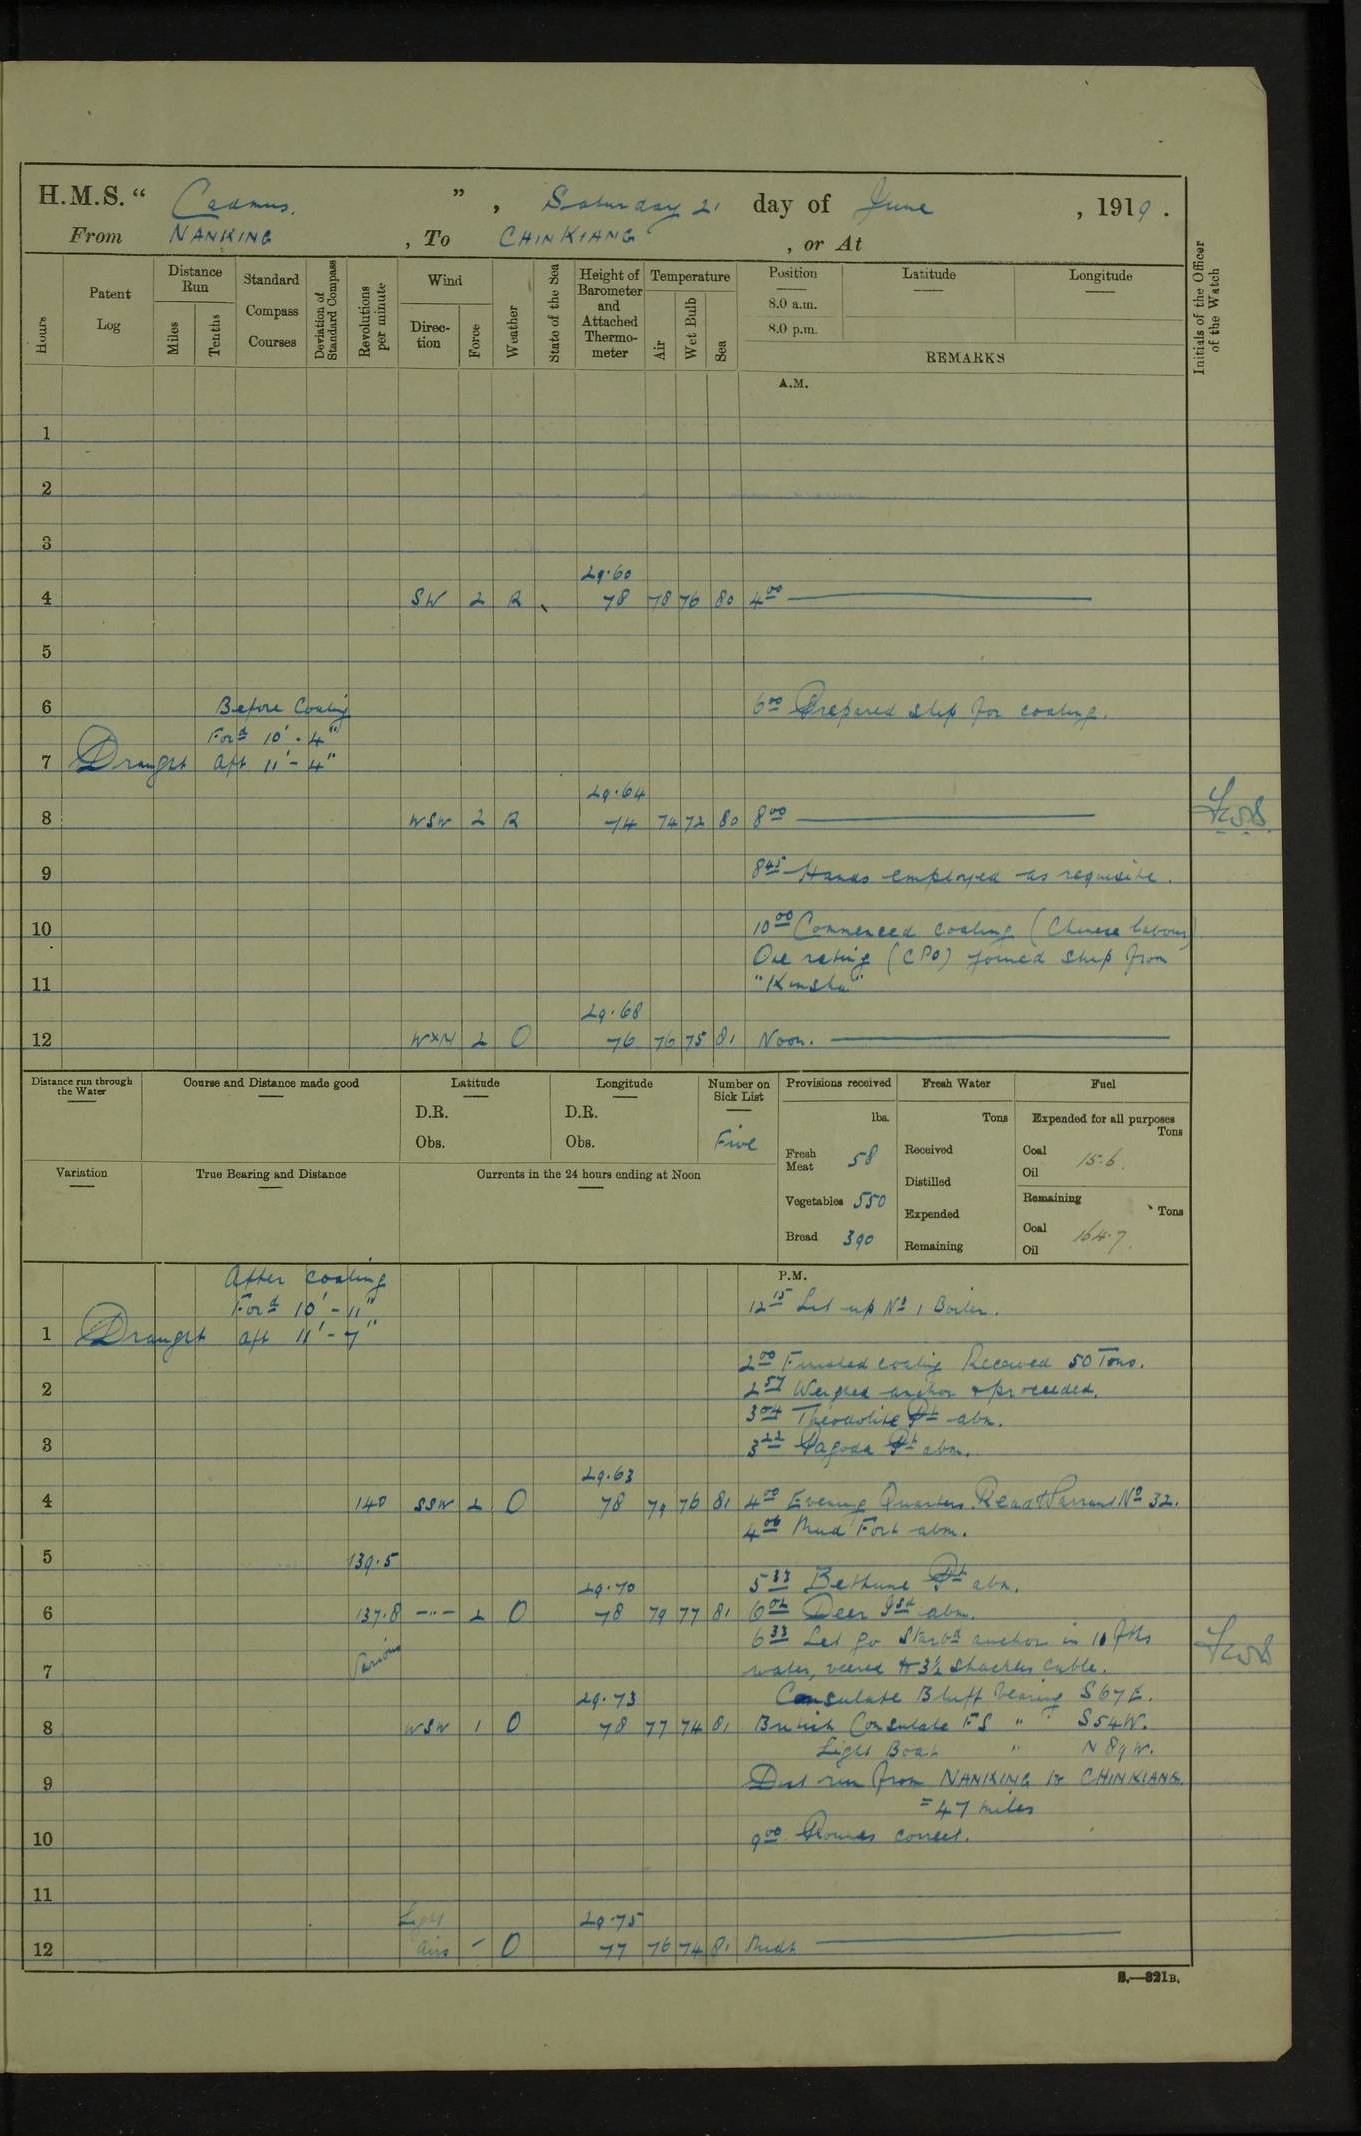 H.M.S. “ Cadmus. ” , Saturday 21 day of June , 1919 .
From NANKING , To CHINKIANG , or At
Hours
Patent Log
Distance Run
Miles
Tenths
Standard Compass Courses
Deviation of Standard Compass
Revolutions per minute
Wind
Direc-tion
Force
Weather
State of the Sea
Height of Barometer and Attached Thermo-meter
Temperature
Air
Wet Bulb
Sea
Position
8.0 a.m.
8.0 p.m.
Latitude
Longitude
REMARKS
Initials of the Officer of the Watch
A.M.
1
2
3
29.60
4 SW 2 R 78 78 76 80 4 00
5
6 Before Coaling 6 00 Prepared ship for coaling.
For d 10' - 4"
7 Draught aft 11' - 4"
29.64
8 WSW 2 R 74 74 72 80 8 00
9 8 45 Hands employed as requisite.
10 10 00 Commenced coaling (Chinese labour)
One rating (CPO) joined ship from
11 "Kinsha"
29.68
12 WxN 2 O 76 76 75 81 Noon.
Distance run through the Water
Course and Distance made good
Latitude
D.R.
Obs.
Longitude
D.R.
Obs.
Number on Sick List
Five
Provisions received
lbs.
Fresh Meat 58
Vegetables 550
Bread 390
Fresh Water
Tons
Received
Distilled
Expended
Remaining
Fuel
Expended for all purposes
Tons
Coal 15.6
Oil
Remaining
Tons
Coal 164.7
Oil
Variation
True Bearing and Distance
Currents in the 24 hours ending at Noon
P.M.
After coaling
For d 10' - 11" 12 15 Let up No 1 Boiler.
1 Draught aft 11' - 7"
2 00 Finished coaling Received 50 Tons.
2 2 57 Weighed anchor & proceeded.
3 04 Theodolite Pt abm.
3 3 22 Pagoda Pt abm.
29.63
4 140 SSW 2 O 78 79 76 81 4 00 Evening Quarters. Read Warrant No 32.
4 06 Mud Fort abm.
5 139.5
29.70 5 33 Bethune Pt abm.
6 137.8 -"- 2 O 78 79 77 81 6 02 Deer Isd abm.
6 33 Let go Starbd anchor in 10 fms
7 Various water, veered to 3½ shackles cable.
29.73 Consulate Bluff bearing S67E.
8 WSW 1 O 78 77 74 81 British Consulate FS " S54W.
Light Boat " N89W.
9 Dist run from NANKING to CHINKIANG.
= 47 miles
10 9 00 Rounds correct.
11
Light 29.75
12 airs - O 77 76 74 81 Midt
S.—321B.